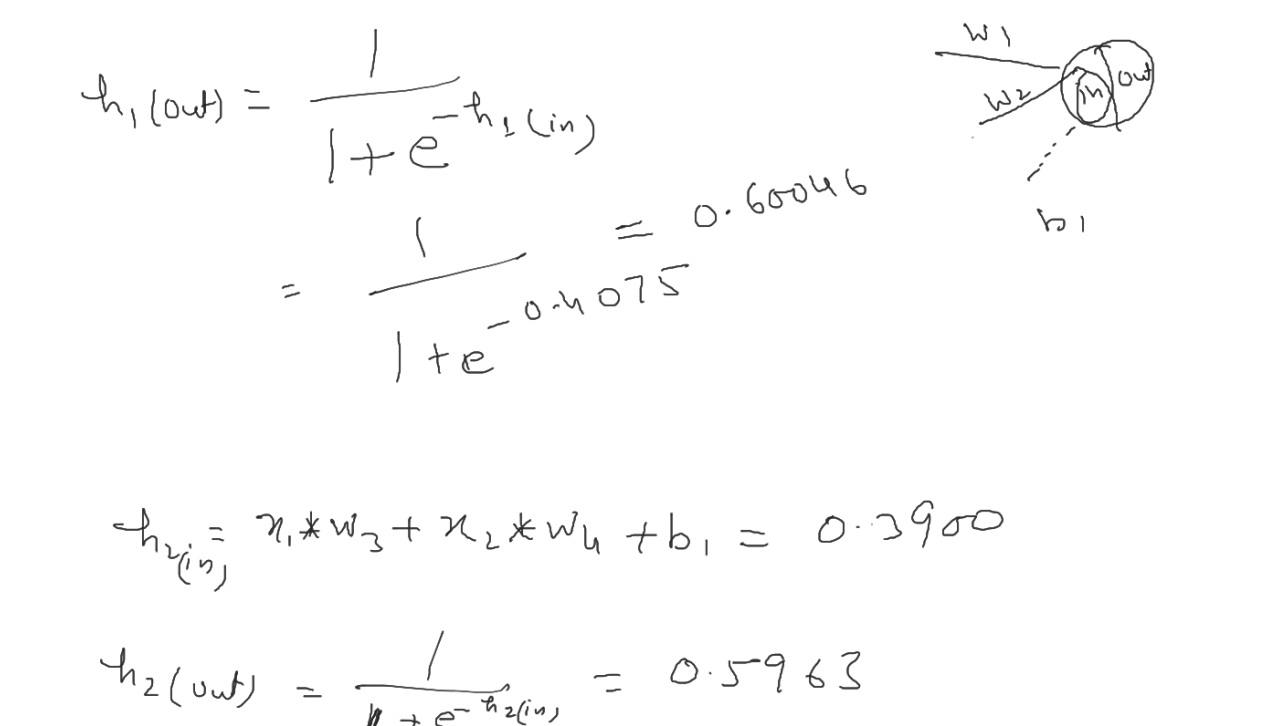 h₁(out) = 1 / (1 + e^(-h₁(in)))
= 1 / (1 + e^(-0.4075)) = 0.60046
w1
w2
in
out
b1
h₂(in) = x₁ * w₃ + x₂ * w₄ + b₁ = 0.3900
h₂(out) = 1 / (1 + e^(-h₂(in))) = 0.5963